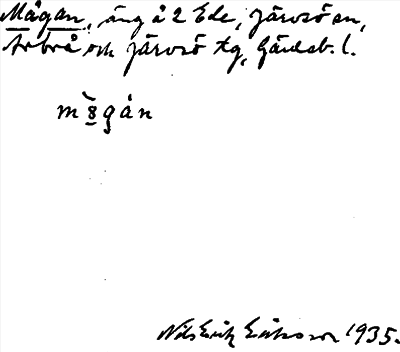 Mågan, äng å 2 Ede, Järvsö sn,
Arbrå och Järvsö tg, Gävleb. l.
m 8̀ g å n
Nils Erik Eriksson 1935.